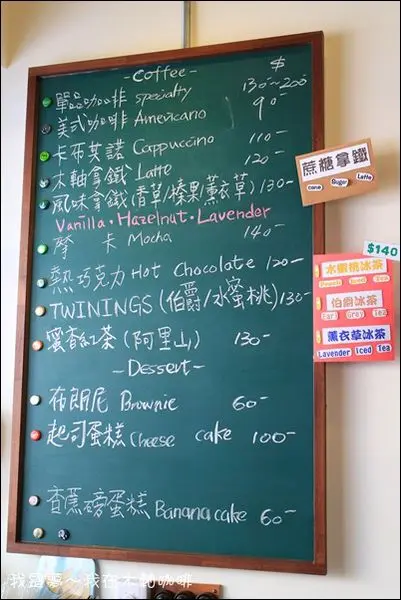 -Coffee- $
單品咖啡 specialty 130~200
美式咖啡 Americano 90-
卡布其諾 Cappuccino 110-
木軸拿鐵 Latte 120-
風味拿鐵(香草/榛果/薰衣草) 130-
Vanilla・Hazelnut・Lavender
摩 卡 Mocha 140-
熱巧克力 Hot Chocolate 120-
TWININGS (伯爵/水蜜桃) 130-
蜜香紅茶 (阿里山) 130-
-Dessert-
布朗尼 Brownie 60-
起司蛋糕 Cheese cake 100-
香蕉磅蛋糕 Banana cake 60-
蔗糖拿鐵
cane Sugar Latte
$140
水蜜桃冰茶
Peach Iced Tea
伯爵冰茶
Earl Grey Tea
薰衣草冰茶
Lavender Iced Tea